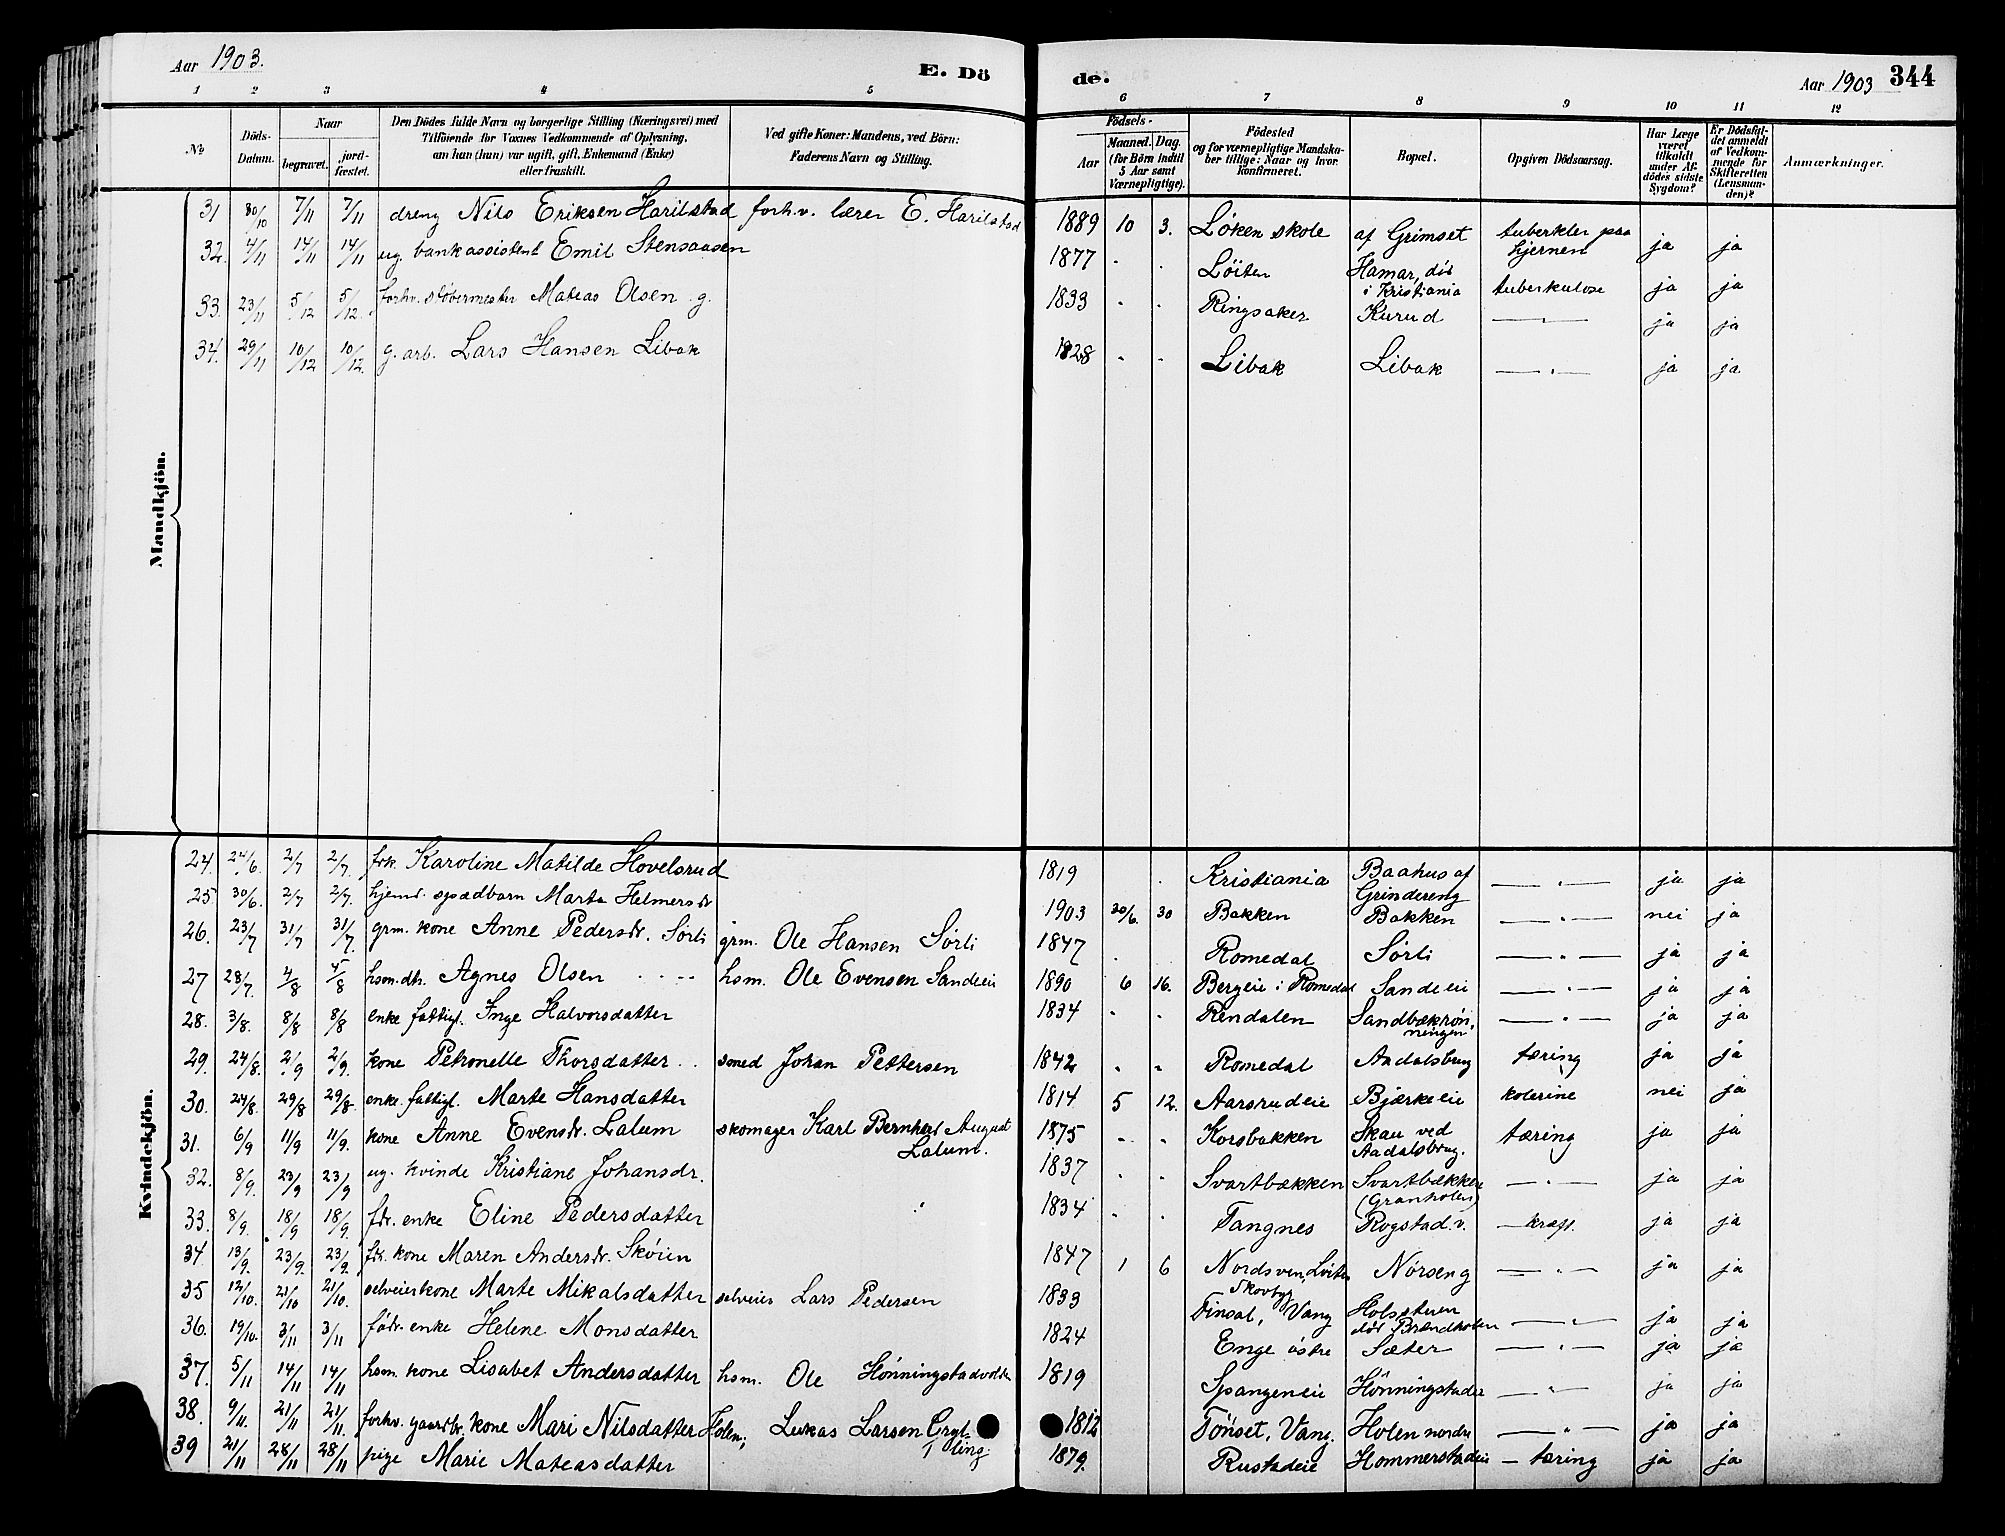 Aar 1903.
E. Dö
de.
Aar 1903
344
1 2 3 4 5 6 7 8 9 10 11 12
No
Döds-
Datum.
Naar
begravet.
jord-
fæstet.
Den Dödes fulde Navn og borgerlige Stilling (Næringsvei) med
Tilföiende for Voxnes Vedkommende af Oplysning,
om han (hun) var ugift, gift, Enkemand (Enke)
eller fraskilt.
Ved gifte Koner: Mandens, ved Börn:
Faderens Navn og Stilling.
Födsels-
Aar
Maaned. Dag.
(for Börn indtil
5 Aar samt
Værnepligtige).
Födested
og for værnepligtige Mandska-
ber tillige: Naar og hvor
konfirmeret.
Bopæl.
Opgiven Dödsaarsag.
Har Læge
været
tilkaldt
under Af-
dödes sidste
Sygdom?
Er Dödsfal-
det anmeldt
af Vedkom-
mende for
Skifteretten
(Lensman-
den)?
Anmærkninger.
Mandkjön.
31 30/10 7/11 7/11 dreng Nils Eriksen Harilstad forhv. lærer E. Harilstad 1889 10 3. Løken skole af Grimset tuberkler paa hjernen ja ja
32. 4/11 14/11 14/11 ug. bankassistent Emil Stensaasen 1877 " " Löiten Hamar, död i Kristiania tuberkulose ja ja
33. 23/11 5/12 5/12. forhv. støbermester Mateas Olsen g. 1833 " " Ringsaker Kurud — " — ja ja
34. 29/11 10/12 10/12. g. arb. Lars Hansen Libak 1828 " " Libak Libak — " — ja ja
Kvindekjön.
24. 24/6. 2/7 2/7. frk. Karoline Matilde Hovelsrud 1819 " Kristiania Baahus af Grindereng — " — ja ja
25. 30/6. 2/7 2/7. hjemd. spædbarn Marta Helmersdr 1903 30/6. 30 Bakken Bakken — " — nei ja
26. 23/7 31/7 31/7. grm. kone Anne Pedersdr. Sørli grm. Ole Hansen Sørli 1847 " Romedal Sørli — " — ja ja
27 28/7. 4/8 4/8 hsm. dtr. Agnes Olsen hsm. Ole Evensen Sandeie 1890 6 16. Bergeie i Romedal Sandeie — " — ja ja
28. 3/8. 8/8 8/8 enke fattigl. Inge Halvorsdatter 1834 " " Rendalen Sandbækrønningen — " — ja ja
29. 24/8. 2/9 2/9. kone Petronelle Thorsdatter smed Johan Pettersen 1842 " " Romedal Aadalsbrug tæring ja ja
30. 24/8. 29/8 29/8. enke. fattigl. Marte Hansdatter 1814 5 12. Aarsrudeie Bjærkeeie kolerine nei ja
31. 6/9 11/9 11/9. kone Anne Evensdr. Lalum skomager Karl Bernhard August Lalum. 1875 " " Korsbakken Skau ved Aadalsbrug. tæring ja ja
32. 8/9. 23/9 23/9 ug. kvinde Kristiane Johansdr. 1837 " " Svartbækken Svartbækken (Granholen) — " — ja ja
33. 8/9. 18/9 18/9. fdr. enke Eline Pedersdatter 1834 " " Tangnes Rogstad v. — kræft. ja ja
34 13/9. 23/9. 23/9. fdr. kone Maren Andersdr. Skøien 1847 1 6 Nordsven, Löiten Skovbyg Nørseng — " — ja ja
35 12/10. 21/10 21/10. selveierkone Marte Mikalsdatter selveier Lars Pedersen 1833 Finsal, Vang Holsstuen död Brændholen — " — ja ja
36. 19/10. 3/11 3/11 födr. enke Helene Monsdatter 1824 Enge östre Sæter — " — ja ja
37. 5/11 14/11 14/11 hsm. kone Lisabet Andersdatter hsm. Ole Hönningstadvolden 1819 Spangeneie Hönningstadeie — " — ja ja
38. 9/11. 21/11 21/11. forhv. gaardbr. kone Mari Nilsdatter Holen; Lukas Larsen 1812 Tönset, Vang. Holen nordre — " — ja ja
39 21/11 28/11 28/11 pige Marie Mateasdatter 1879. Rustadeie Hommerstadeie — tæring ja ja